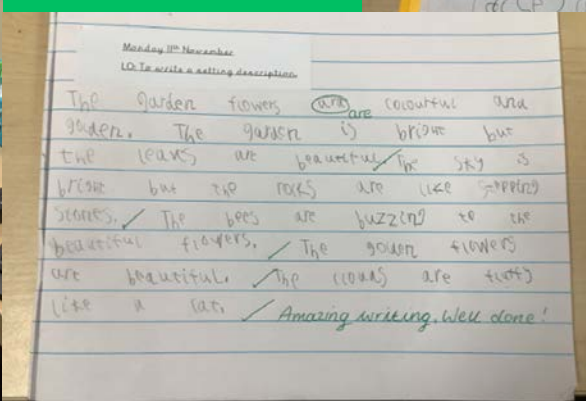 Monday 11th November
LO: To write a setting description.
The garden flowers are are colourful and
golden. The garden is bright but
the leaves are beautiful. The sky is
bright but the rocks are like stepping
stones. The bees are buzzing to the
beautiful flowers. The golden flowers
are beautiful. The clouds are fluffy
like a cat. Amazing writing. Well done!